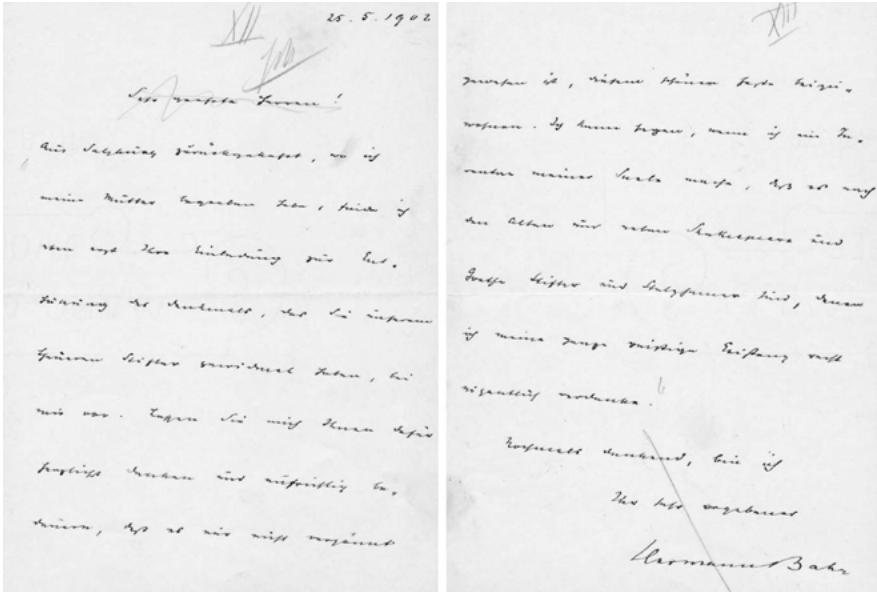 25. 5. 1902
XII
Sehr geehrte Herren!
Aus Salzburg zurückgekehrt, wo ich
meine Mutter begraben habe, finde ich
eben erst Ihre Einladung zur Ent-
hüllung des Denkmals, das Sie unserem
theueren Stifter gewidmet haben, bei
mir vor. Lassen Sie mich Ihnen dafür
herzlichst danken und aufrichtig be-
dauern, daß es mir nicht vergönnt
XIII
gewesen ist, diesem schönen Feste beizu-
wohnen. Ich kann sagen, wenn ich ein In-
ventar meiner Seele mache, daß es nach
den Alten und neben Shakespeare und
Goethe Stifter und Stelzhamer sind, denen
ich meine ganze geistige Existenz recht
eigentlich verdanke.
Nochmals dankend, bin ich
Ihr sehr ergebener
Hermann Bahr